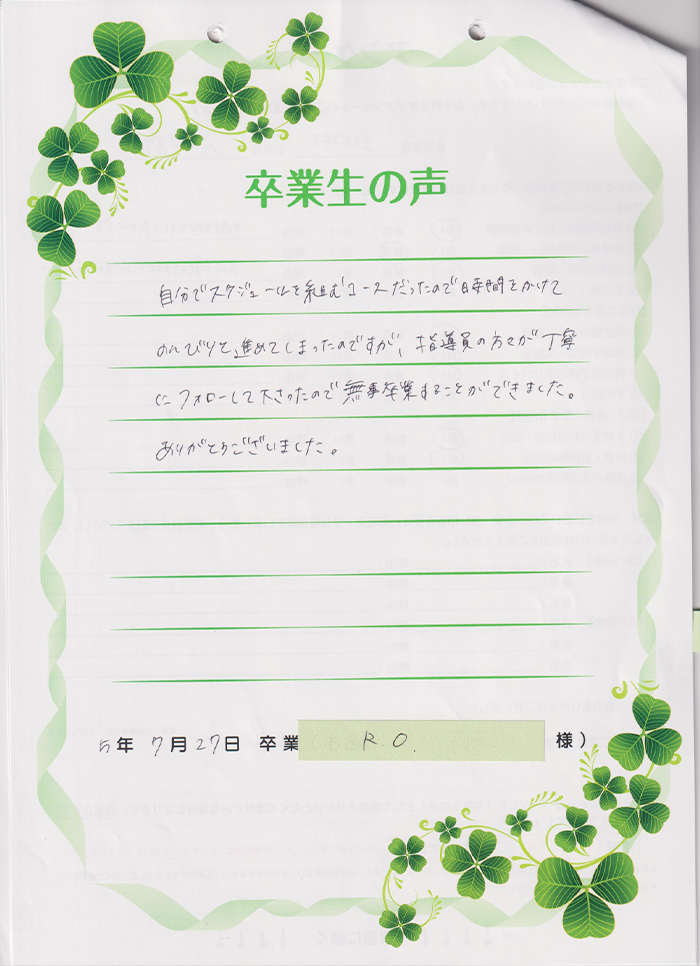 卒業生の声
自分でスケジュールを組むコースだったので時間をかけて
のんびりと進めてしまったのですが、指導員の方々が丁寧
にフォローして下さったので無事卒業することができました。
ありがとうございました。
5年 7月27日 卒業 R.O. 様)